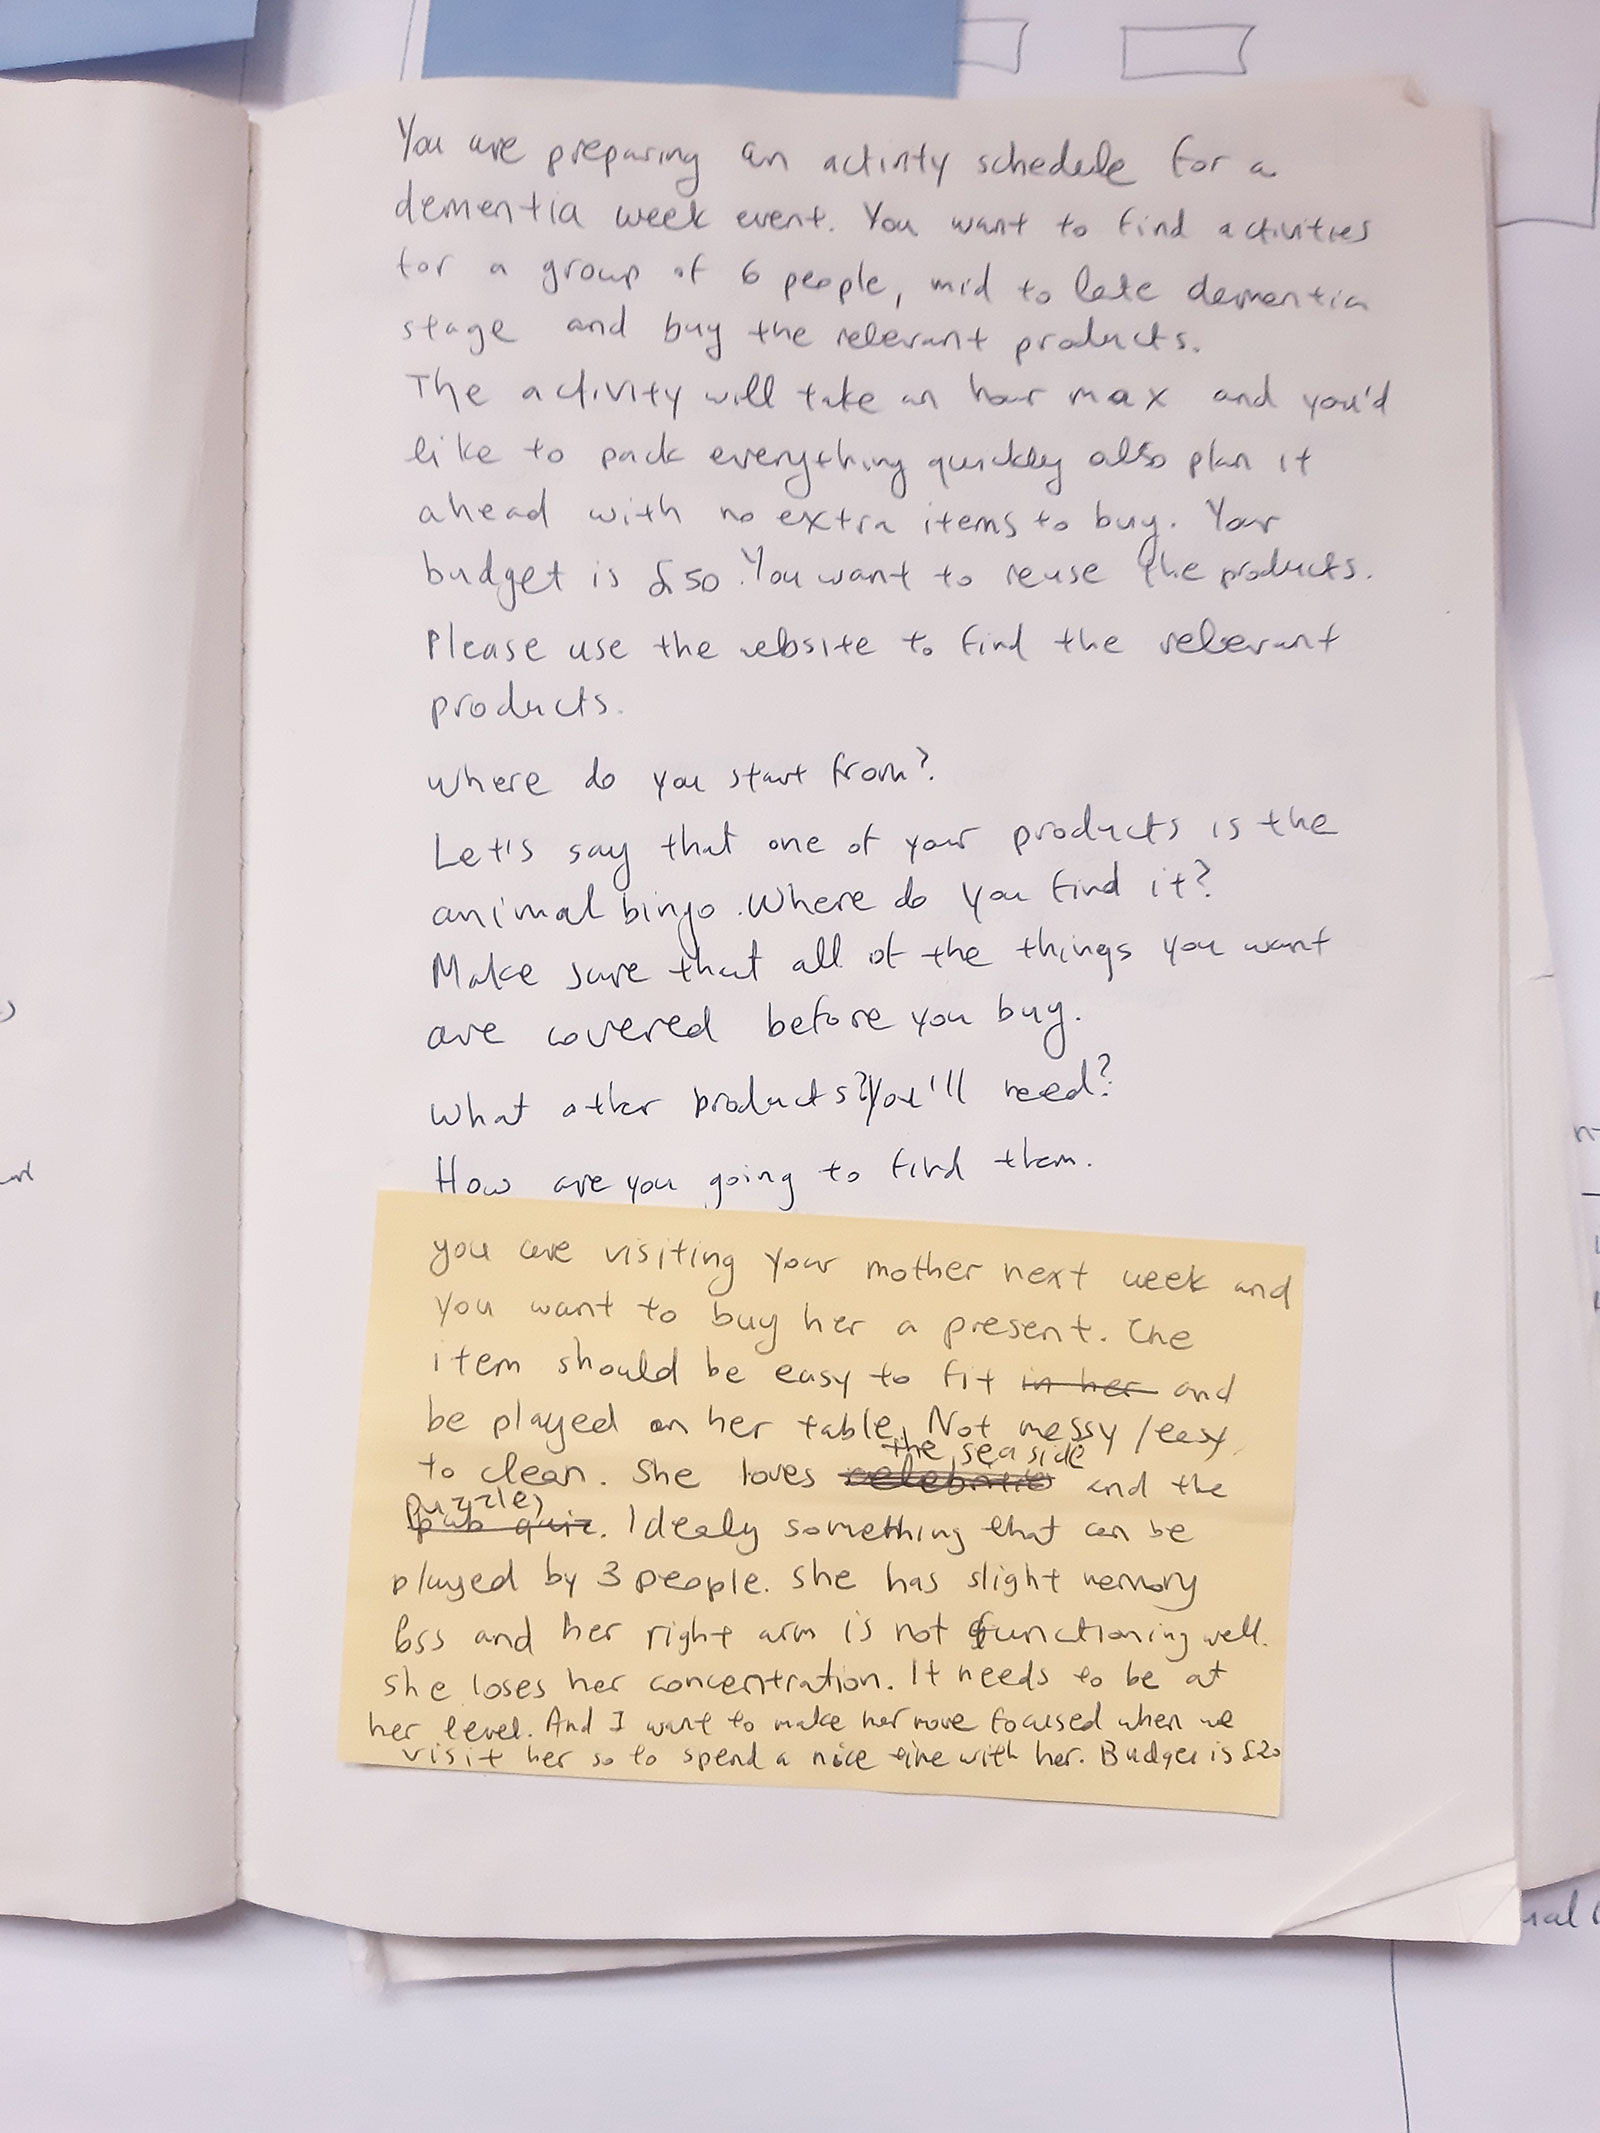 You are preparing an activity schedule for a
dementia week event. You want to find activities
for a group of 6 people, mid to late dementia
stage and buy the relevant products.
The activity will take an hour max and you'd
like to pack everything quickly also plan it
ahead with no extra items to buy. Your
budget is £50. You want to reuse the products.
Please use the website to find the relevant
products.
Where do you start from?
Let's say that one of your products is the
animal bingo. Where do you find it?
Make sure that all of the things you want
are covered before you buy.
What other products? You'll need?
How are you going to find them.
you are visiting your mother next week and
you want to buy her a present. The
item should be easy to fit in her and
be played on her table. Not messy / easy
the sea side
to clean. She loves and the
puzzle)
pub quiz. Idealy something that can be
played by 3 people. She has slight memory
loss and her right arm is not functioning well.
She loses her concentration. It needs to be at
her level. And I want to make her more focused when we
visit her so to spend a nice time with her. Budget is £20
ial